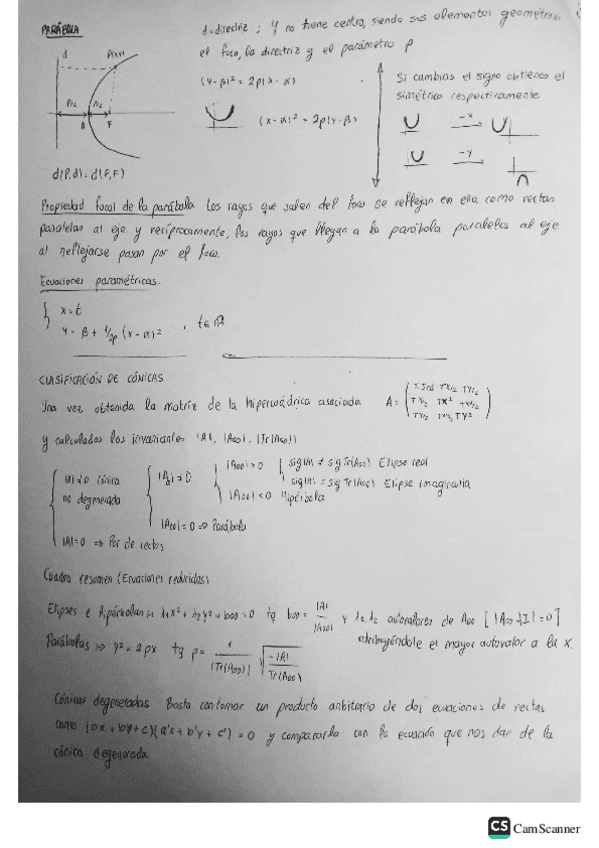 PARÁBOLA
d=directriz ; Y no tiene centro, siendo sus elementos geométricos
el foco, la directriz y el parámetro p
d P(x,y)
(y-β)² = 2p(x-α)
Si cambias el signo obtienes el
simétrico respectivamente
P/2 P/2
A F
(x-α)² = 2p(y-β)
-x
-y
d(P,d) = d(P,F)
Propiedad focal de la parábola Los rayos que salen del foco se reflejan en ella como rectas
paralelas al eje y recíprocamente, los rayos que llegan a la parábola paralelas al eje
al reflejarse pasan por el foco.
Ecuaciones paramétricas.
x=t
y = β + 1/2p (x-α)² , t∈ℝ
CLASIFICACIÓN DE CÓNICAS
Una vez obtenida la matriz de la hipercuádrica asociada A = ( T.Ind TX/2 TY/2
TX/2 TX² TXY/2
TY/2 TXY/2 TY² )
y calculados los invariantes |A|, |A00|, |Tr(A00)|
|A00|>0 sig|A| ≠ sigTr(A00) Elipse real
|A|≠0 Cónica
sig|A| = sigTr(A00) Elipse imaginaria
no degenerada
|A00|<0 Hipérbola
|A00|=0 => Parábola
|A|=0 => Par de rectas
Cuadro resumen (Ecuaciones reducidas)
Elipses e hipérbolas => λ1x² + λ2y² + b00 = 0 tq b00 = |A|/|A00| y λ1, λ2 autovalores de A00 [|A00-λI|=0]
atribuyéndole el mayor autovalor a la x.
Parábolas => y² = 2px tq p = 1/|Tr(A00)| √(-|A|/Tr(A00))
Cónicas degeneradas Basta con tomar un producto arbitrario de dos ecuaciones de rectas
como (ax + by + c)(a'x + b'y + c') = 0 y compararlo con la ecuación que nos dan de la
cónica degenerada.
CS CamScanner